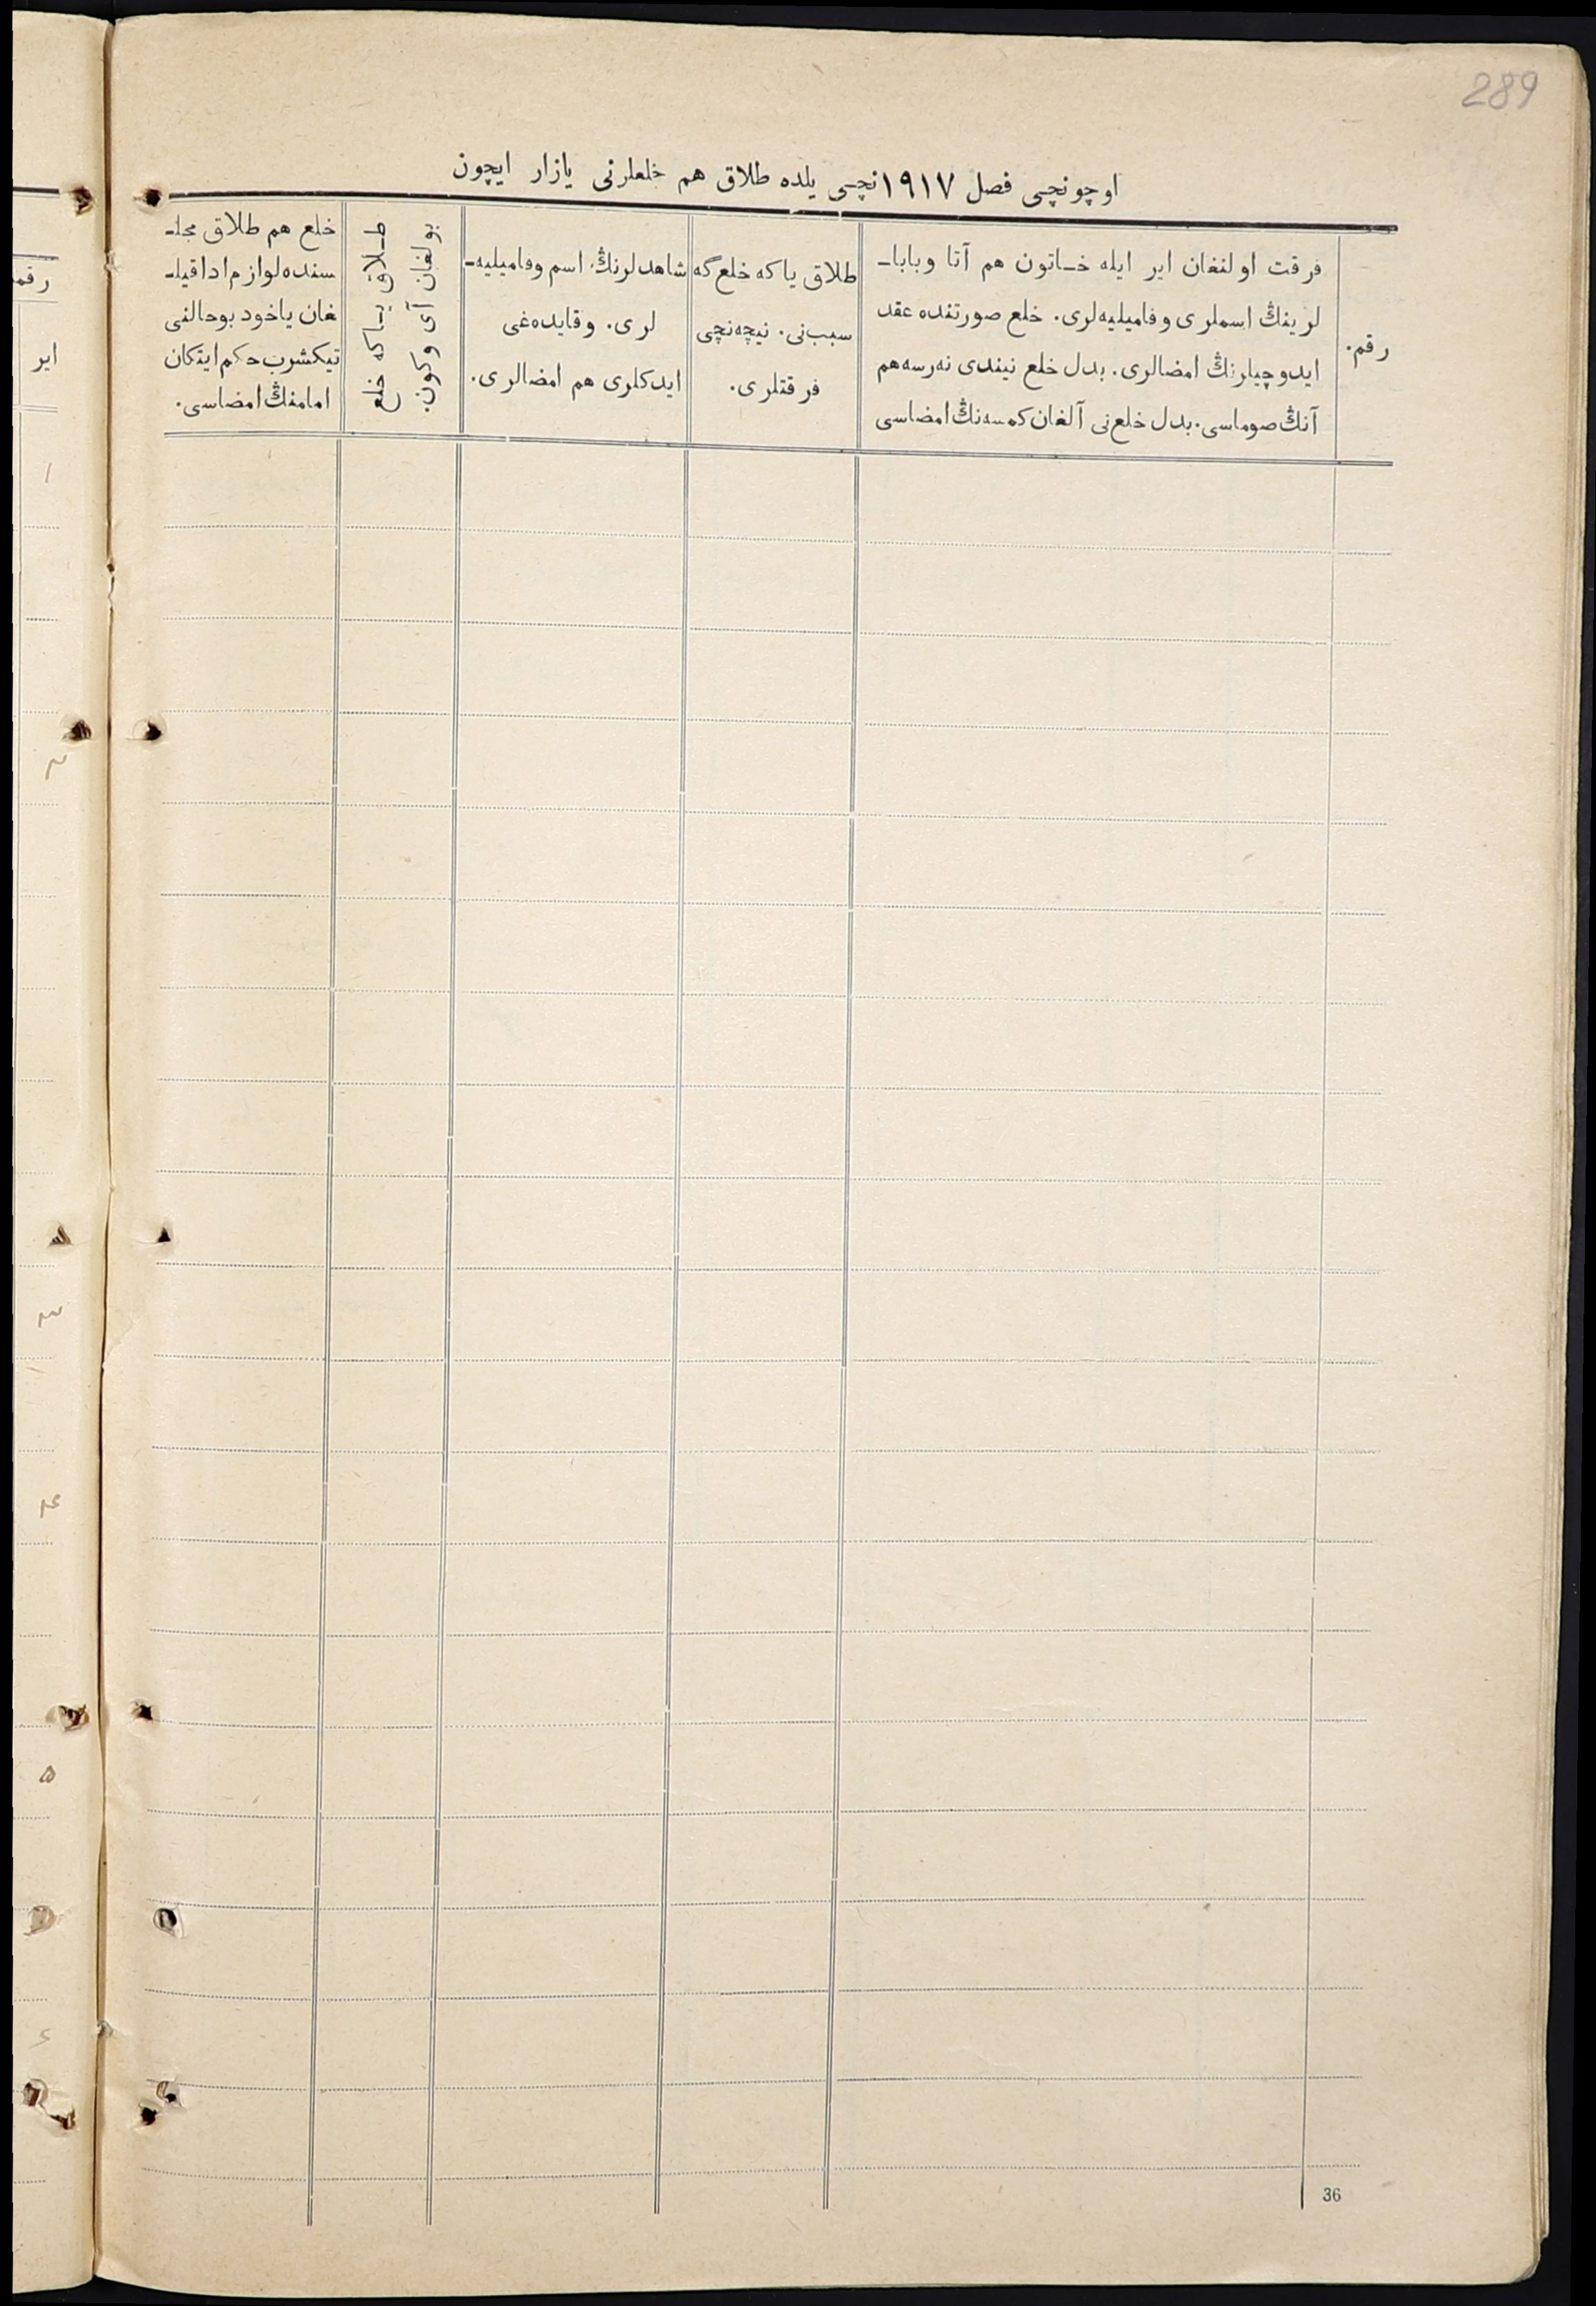 289
اوچونچی فصل ۱۹۱۷نچی یلده طلاق هم خلعلرنی یازار ایچون
رقم.
فرقت اولنغان ایر ایله خاتون هم آتا وبابا-
لرینڭ اسملری وفامیلیه‌لری. خلع صورتنده عقد
ایدوچیلرنڭ امضالری. بدل خلع نیندی نه‌رسه‌هم
آنڭ صوماسی. بدل خلع‌نی آلغان کمسه‌نڭ امضاسی
طلاق یا که خلع گه
سبب‌نی. نیچه‌نچی
فرقتلری.
شاهدلرنڭ اسم وفامیلیه-
لری. وقایده‌غی
ایدکلری هم امضالری.
طلاق یا که خلع
بولغان آی و کون.
خلع هم طلاق مجلـ
سنده لوازم ادا قیلـ
غان یاخود بوحالنی
تیکشرب حکم ایتکان
امامنڭ امضاسی.
رقم
ایر
۱
۲
۳
۴
۵
۶
36